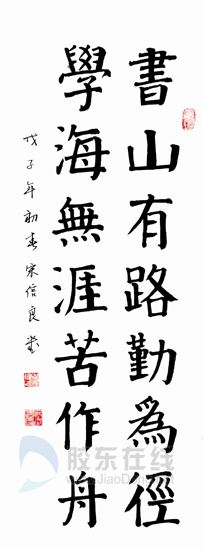 書山有路勤為徑
學海無涯苦作舟
戊子年初春宋信良書
胶东在线
www.JiaoDong.net